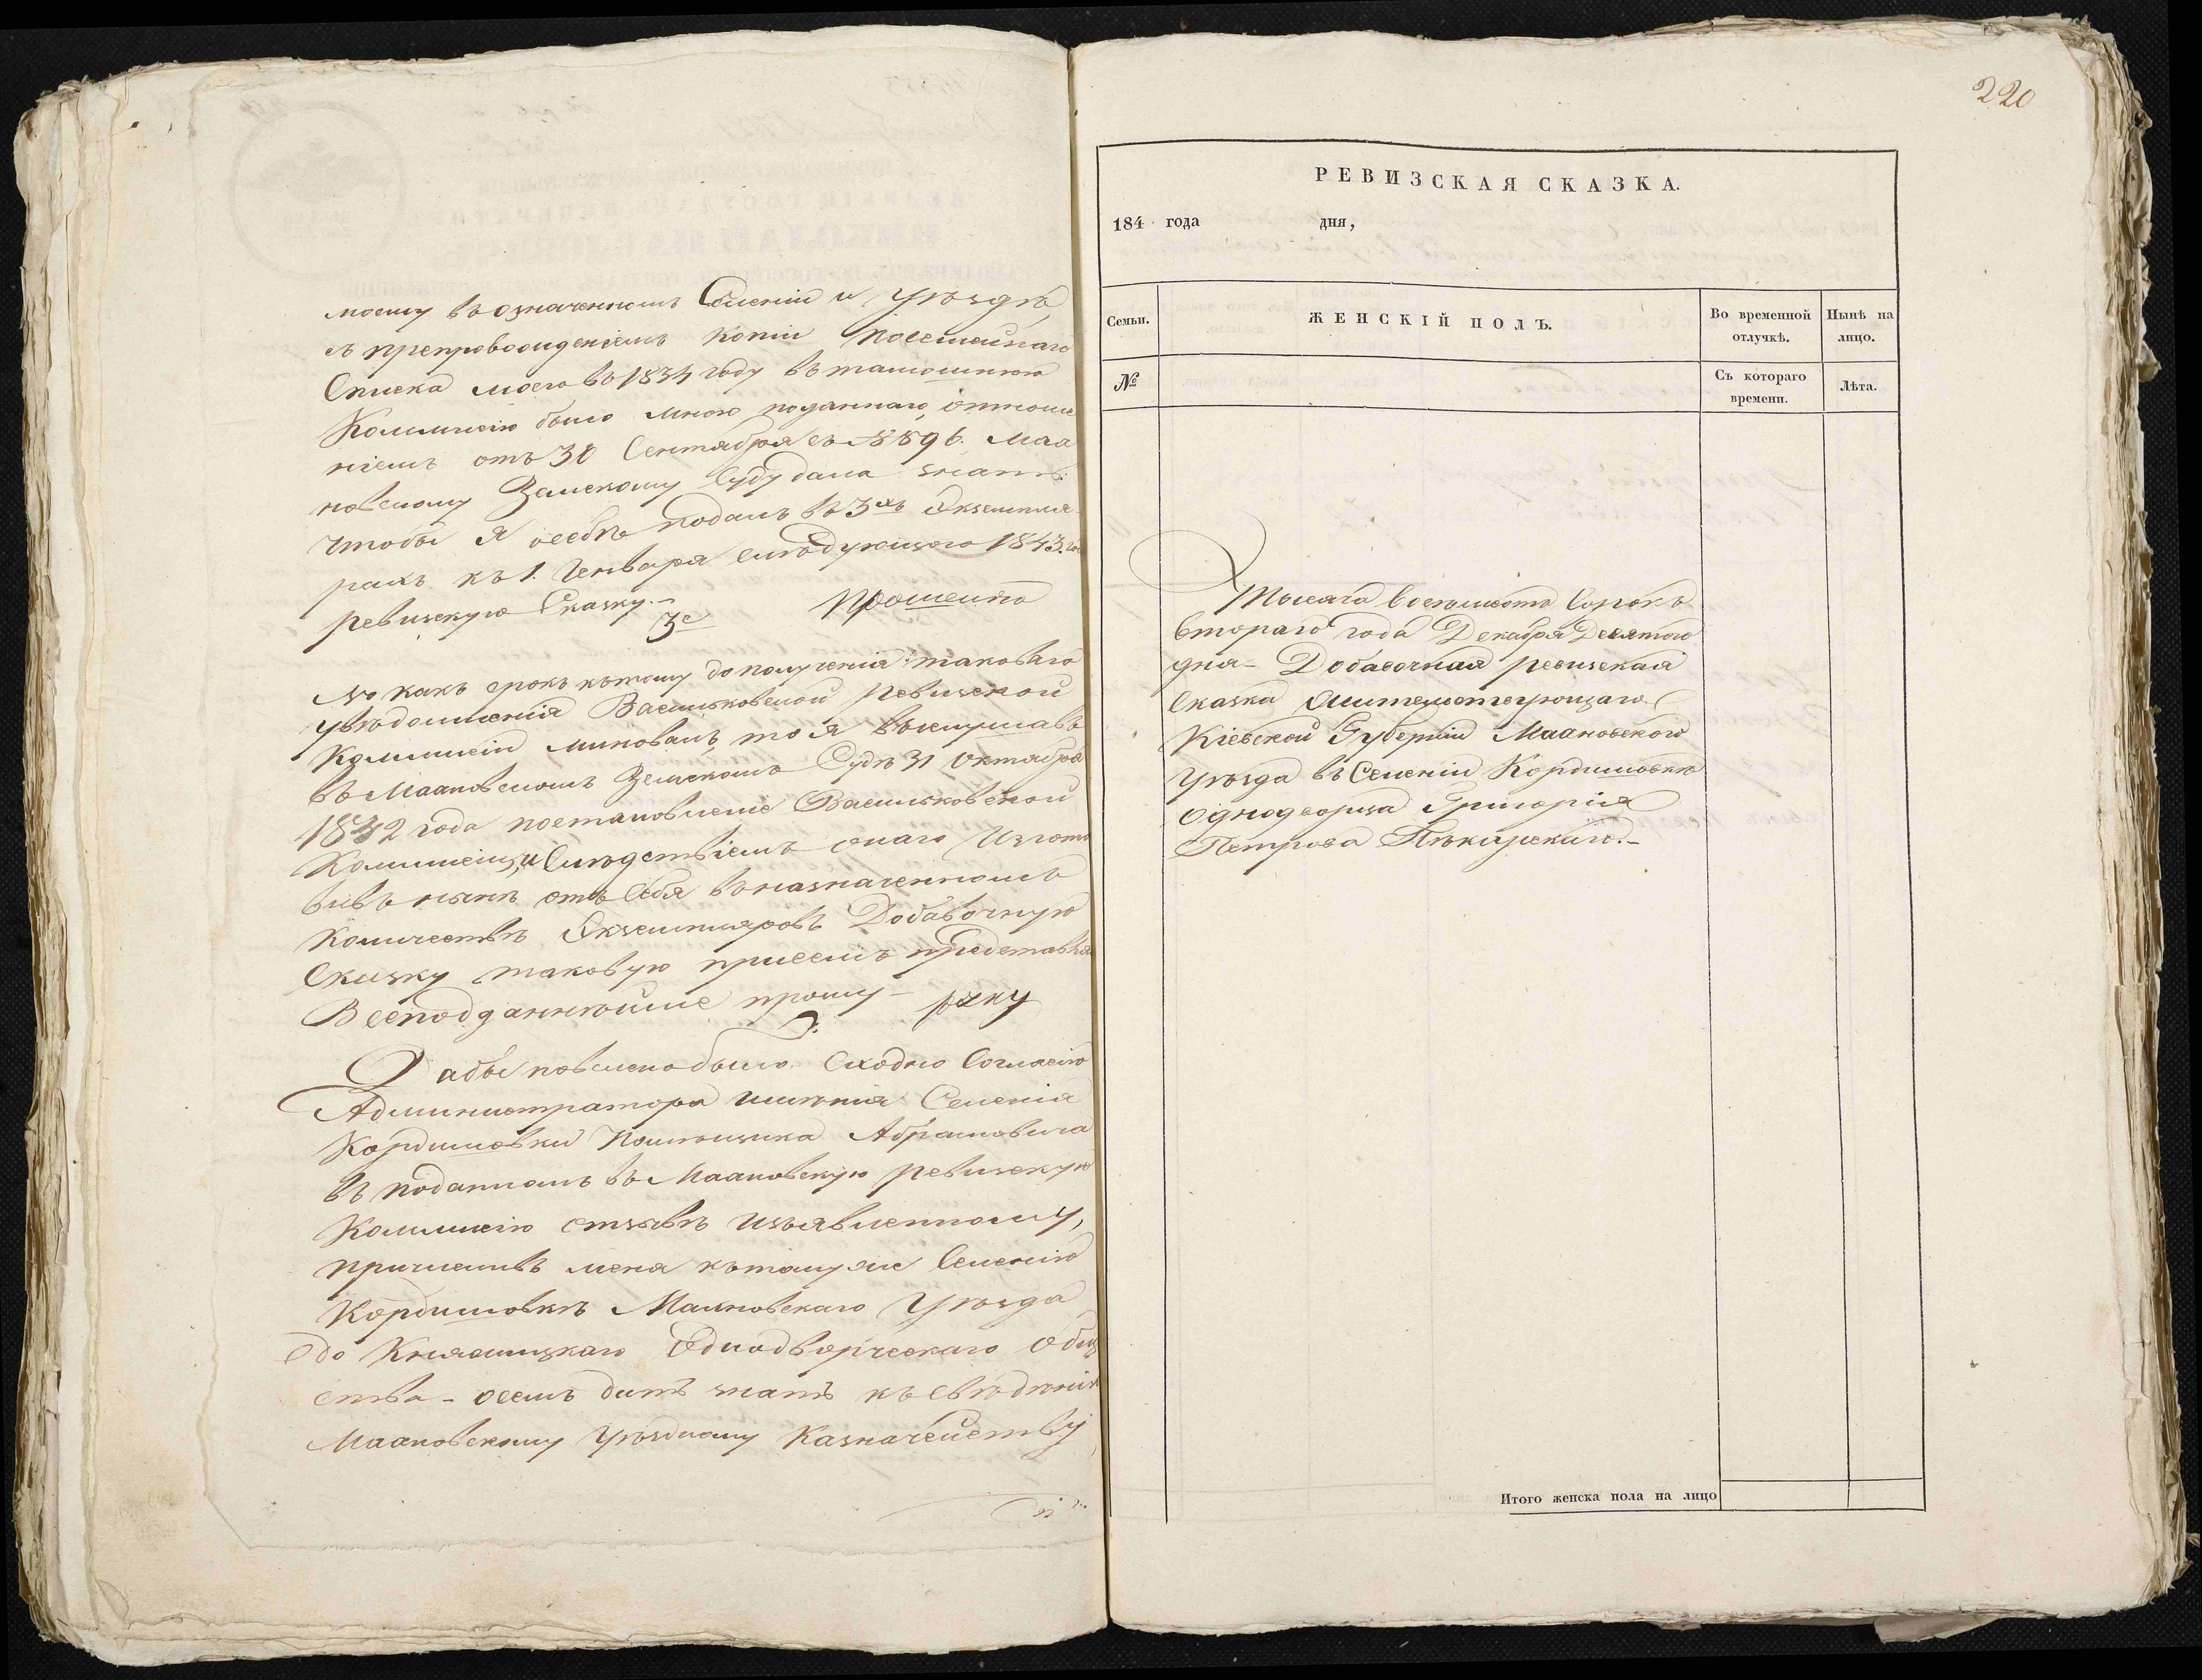 моему въ означенномъ Селеніи и Уѣздѣ,
съ препровожденіемъ копіи посемейнаго
Списка моего въ 1834 году въ тамошнюю
Коммисію было мною поданнаго, отноше
ніемъ отъ 30 Сентября съ № 896. Маха
новскому Земскому Суду дала знать
чтобы я о себѣ подалъ въ 3хъ Экземпля
рахъ къ 1. Генваря слѣдующаго 1843. го
ревизскую Сказку.-
3е прошенію
но какъ срокъ къ тому до полученія таковаго
увѣдомленія Васильковской Ревизской
Коммисіи миновалъ, то я выслушавъ
въ Махновскомъ Земскомъ Судѣ 31 Октября
1842 года постановленіе Васильковской
Коммисіи, и Слѣдствіемъ онаго Изгото
вивъ нынѣ отъ Себя въ назначенномъ
количествѣ Екземпляровъ Добавочную
Сказку таковую присемъ представляя
Всеподданнѣйше прошу- руку
Дабы повелено было Сходно Согласію
Администратора имѣнія Селенія
Кордишовки Помѣщика Абрамовича
въ поданномъ въ Махновскую ревизскую
Коммисію отзывѣ изъявленному,
причислить меня къ тому же Селенію
Кордишовкѣ Махновскаго Уѣзда
до Княжицкаго Однодворческаго Общ
ства - о семъ дать знать къ свѣдѣнію
Махновскому Уѣздному Казначейству
и
220
РЕВИЗСКАЯ СКАЗКА.
184 года дня,
Семьи. ЖЕНСКІЙ ПОЛЪ. Во временной отлучкѣ. Нынѣ на лицо.
№ Съ котораго времени. Лѣта.
Тысяча восемьсотъ Сорокъ
втораго года Декабря Десятого
дня - Добавочная ревизская
Сказка жительствующаго
Кіевской Губерніи Махновского
Уѣзда въ Селеніи Кордишовкѣ
Однодворца Григорія
Петрова Пѣкарскаго.-
Итого женска пола на лицо